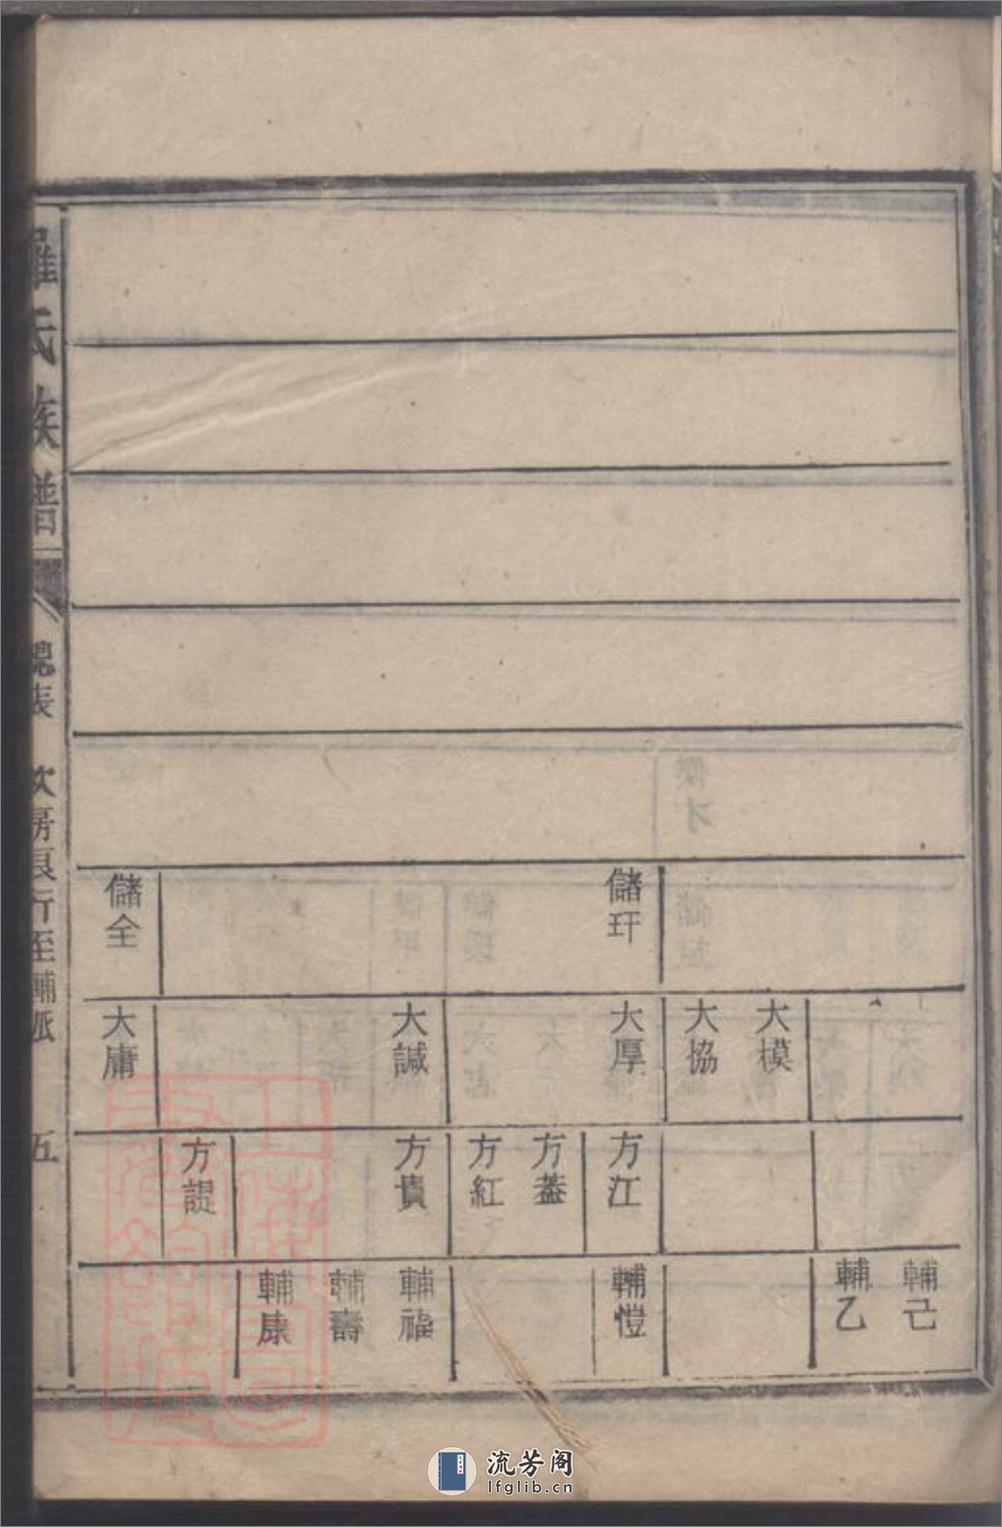 儲玕
儲全
大模
大協
大厚
大諴
大庸
方江
方葢
方紅
方貴
方諟
輔己
輔乙
輔愷
輔福
輔壽
輔康
羅氏族譜
總表
欽房良行至輔派
五
流芳阁
lfglib.cn